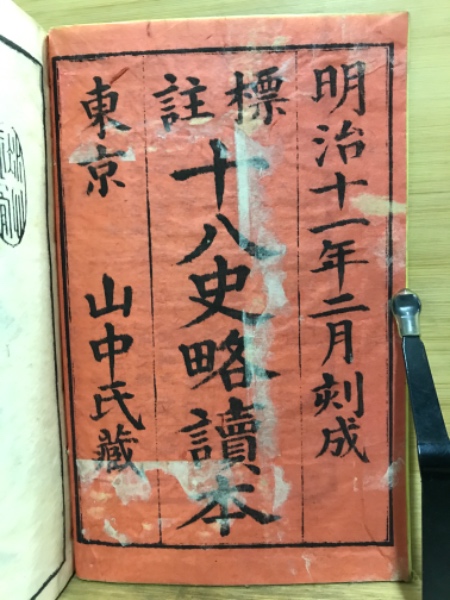 明治十一年二月刻成
標註
十八史略讀本
東京 山中氏藏